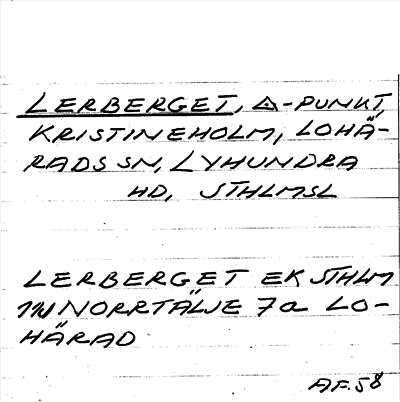 LERBERGET, △-PUNKT,
KRISTINEHOLM, LOHÄ-
RADS SN, LYHUNDRA
HD, STHLMSL
LERBERGET EK STHLM
11NV NORRTÄLJE 7a LO-
HÄRAD
AF. 58